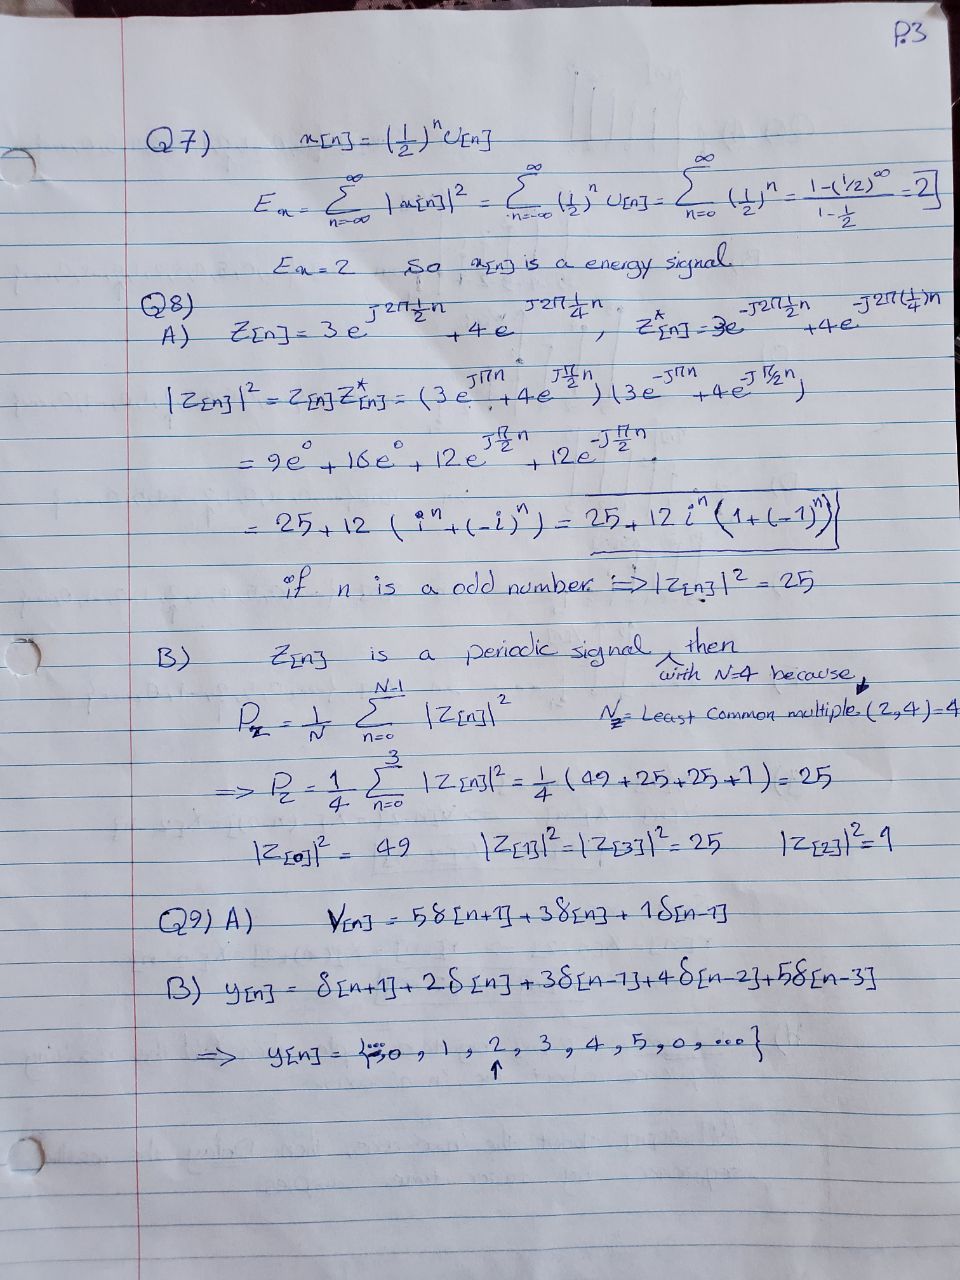 P.3
Q7) x[n] = (1/2)^n U[n]
E_x = ∑_{n=-∞}^{∞} |x[n]|^2 = ∑_{n=-∞}^{∞} (1/2)^n U[n] = ∑_{n=0}^{∞} (1/2)^n = (1-(1/2)^∞)/(1-1/2) = 2]
E_x = 2 So x[n] is a energy signal
Q8)
A) Z[n] = 3e^{J2π(1/2)n} + 4e^{J2π(1/4)n} , Z*[n] = 3e^{-J2π(1/2)n} + 4e^{-J2π(1/4)n}
|Z[n]|^2 = Z[n] Z*[n] = (3e^{Jπn} + 4e^{J(π/2)n}) (3e^{-Jπn} + 4e^{-J(π/2)n})
= 9e^0 + 16e^0 + 12e^{J(π/2)n} + 12e^{-J(π/2)n}
= 25 + 12 (i^n + (-i)^n) = 25 + 12 i^n (1 + (-1)^n)
if n is a odd number ⇒ |Z[n]|^2 = 25
B) Z[n] is a periodic signal, then
with N=4 because
P_z = 1/N ∑_{n=0}^{N-1} |Z[n]|^2 N_z = Least Common multiple (2,4) = 4
⇒ P_z = 1/4 ∑_{n=0}^{3} |Z[n]|^2 = 1/4 (49 + 25 + 25 + 1) = 25
|Z[0]|^2 = 49 |Z[1]|^2 = |Z[3]|^2 = 25 |Z[2]|^2 = 1
Q9) A) V[n] = 5δ[n+1] + 3δ[n] + 1δ[n-1]
B) y[n] = δ[n+1] + 2δ[n] + 3δ[n-1] + 4δ[n-2] + 5δ[n-3]
⇒ y[n] = {... 0, 1, 2, 3, 4, 5, 0, ...}
↑